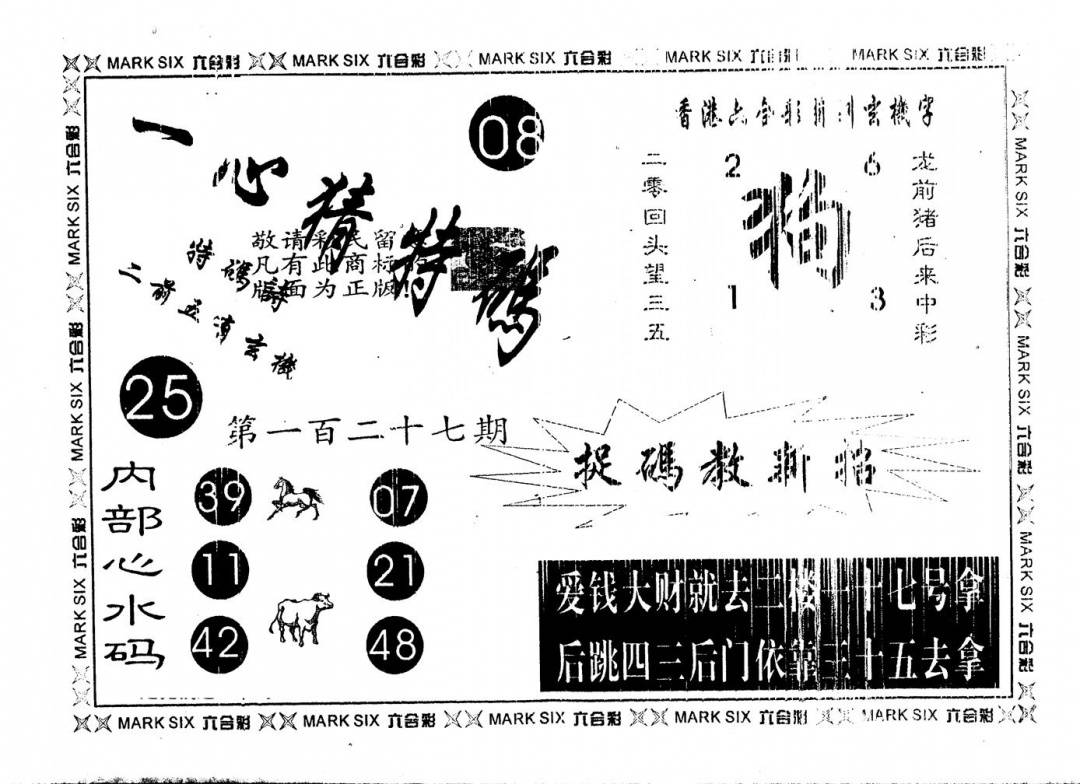 MARK SIX 六合彩 MARK SIX 六合彩 MARK SIX 六合彩 MARK SIX 六合彩 MARK SIX 六合彩
一心猜特碼
08
敬请彩民留意
凡有此商标的
版面为正版!
特碼詩
二前五演玄機
25
香港六合彩
玄機字
二零回头望三五
2 6
狗
1 3
龙前猪后来中彩
第一百二十七期
内部心水码
39 07
11 21
42 48
捉碼教新招
爱钱大财就去二楼一十七号拿
后跳四三后门依靠三十五去拿
MARK SIX 六合彩 MARK SIX 六合彩 MARK SIX 六合彩
MARK SIX 六合彩 MARK SIX 六合彩 MARK SIX 六合彩
MARK SIX 六合彩 MARK SIX 六合彩 MARK SIX 六合彩 MARK SIX 六合彩 MARK SIX 六合彩